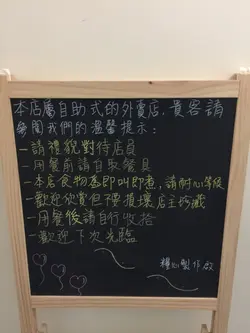 本店屬自助式的外賣店，貴客請
參閱我們的溫馨提示：
－請禮貌對待店員
－用餐前請自取餐具
－本店食物為即叫即煮，請耐心等候
－歡迎欣賞但不損壞店主珍藏
－用餐後請自行收拾
－歡迎下次光臨
糖心製作 啟